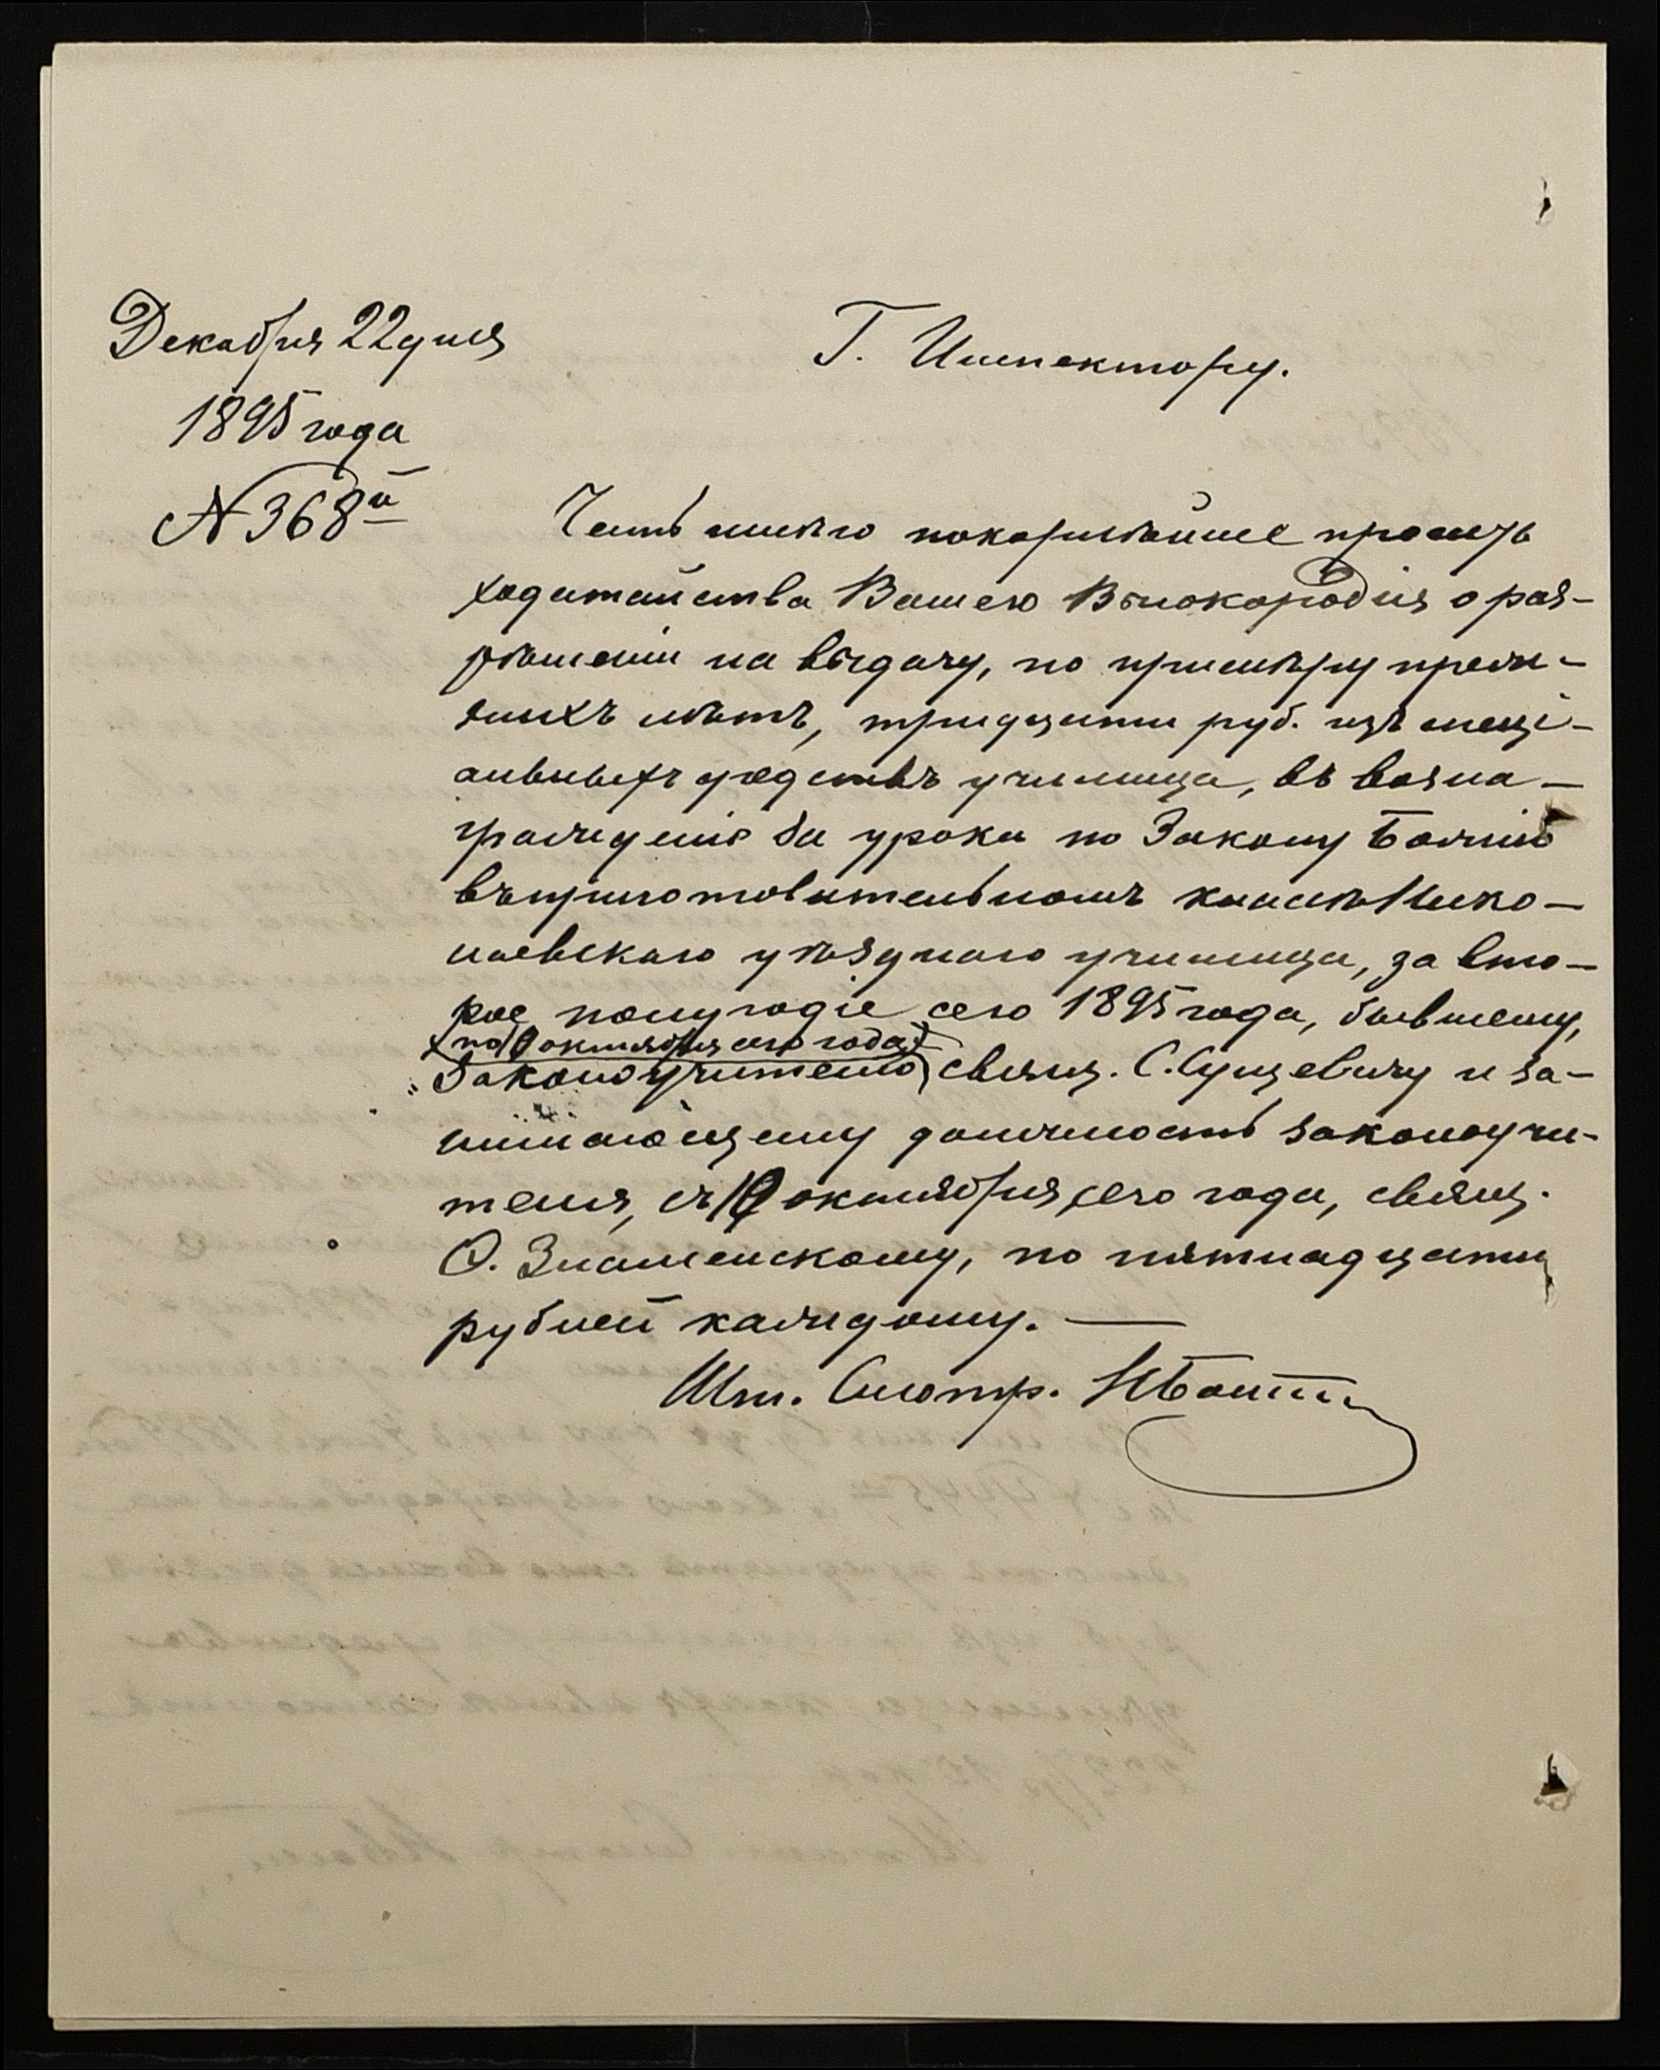 Декабря 22 дня
1895 года
№ 368й
Г. Инспектору.
Честь имѣю покорнѣйше просить
ходатайства Вашего Высокородія о раз-
рѣшеніи на выдачу, по примѣру преж-
нихъ лѣтъ, тридцати руб. изъ спеці-
альныхъ средствъ училища, въ возна-
гражденіе за уроки по Закону Божію
въ приготовительномъ классѣ Нико-
лаевскаго уѣзднаго училища, за вто-
рое полугодіе сего 1895 года, бывшему,
(по 10 октября сего года)
законоучителю, свящ. С. Сунцевичу и за-
нимающему должность законоучи-
теля, съ 10 октября сего года, свящ.
О. Знаменскому, по пятнадцати
рублей каждому. —
Шт. Смотр.